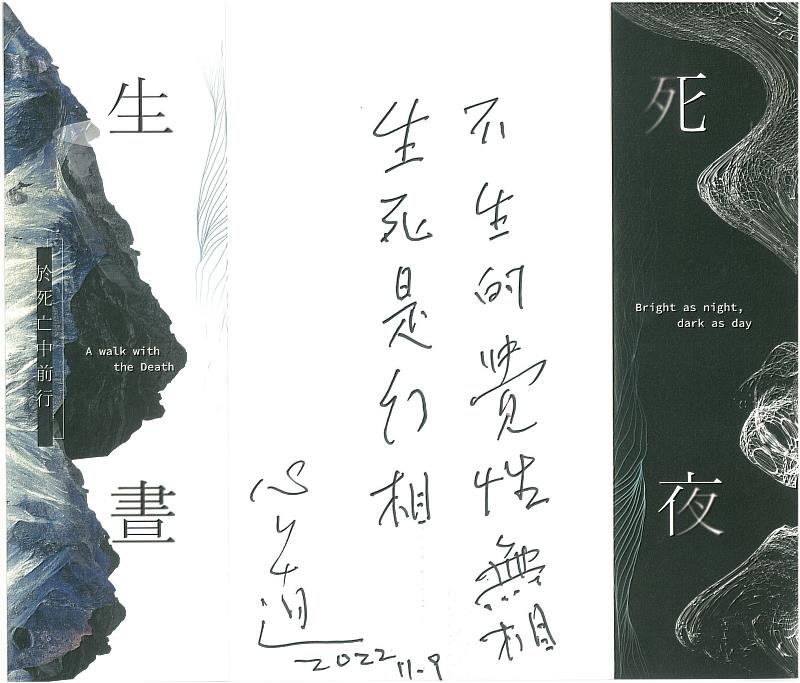 生晝
於死亡中前行
A walk with
the Death
不生的覺性無相
生死是幻相
心道
2022 11-9
死夜
Bright as night,
dark as day